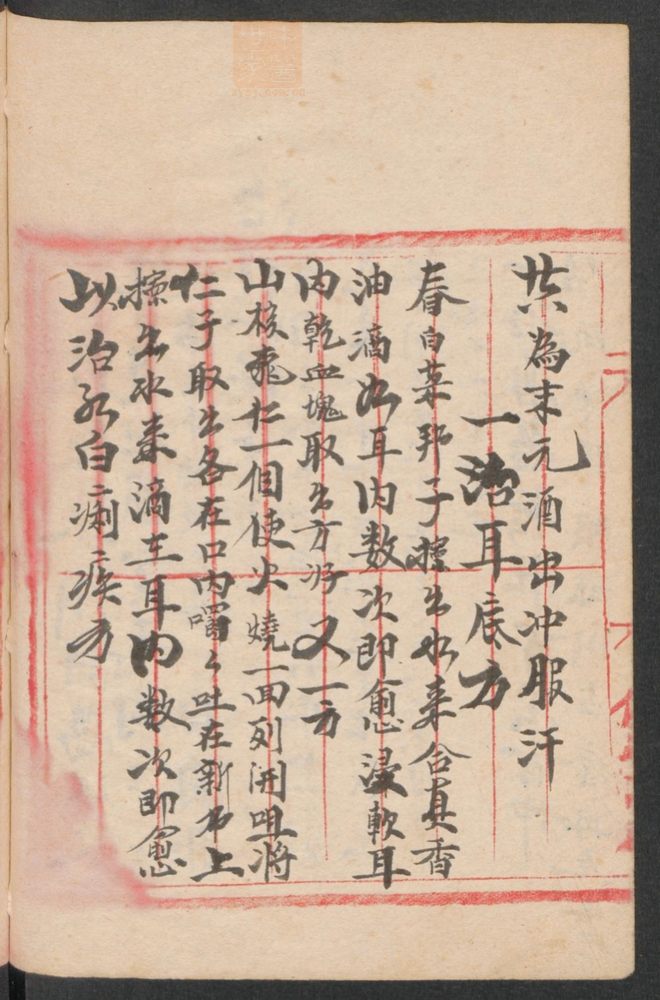 共為末元酒出冲服汗
一治耳底方
春白菜邦子擦出水来合真香
油滴如耳内数次即愈浸軟耳
内乾血塊取出方好又一方
山核桃仁一個使火燒一面列開咀将
仁子取出各在口内嚼々吐在新布上
擦出水来滴在耳内数次即愈
以治紅白痢疾方